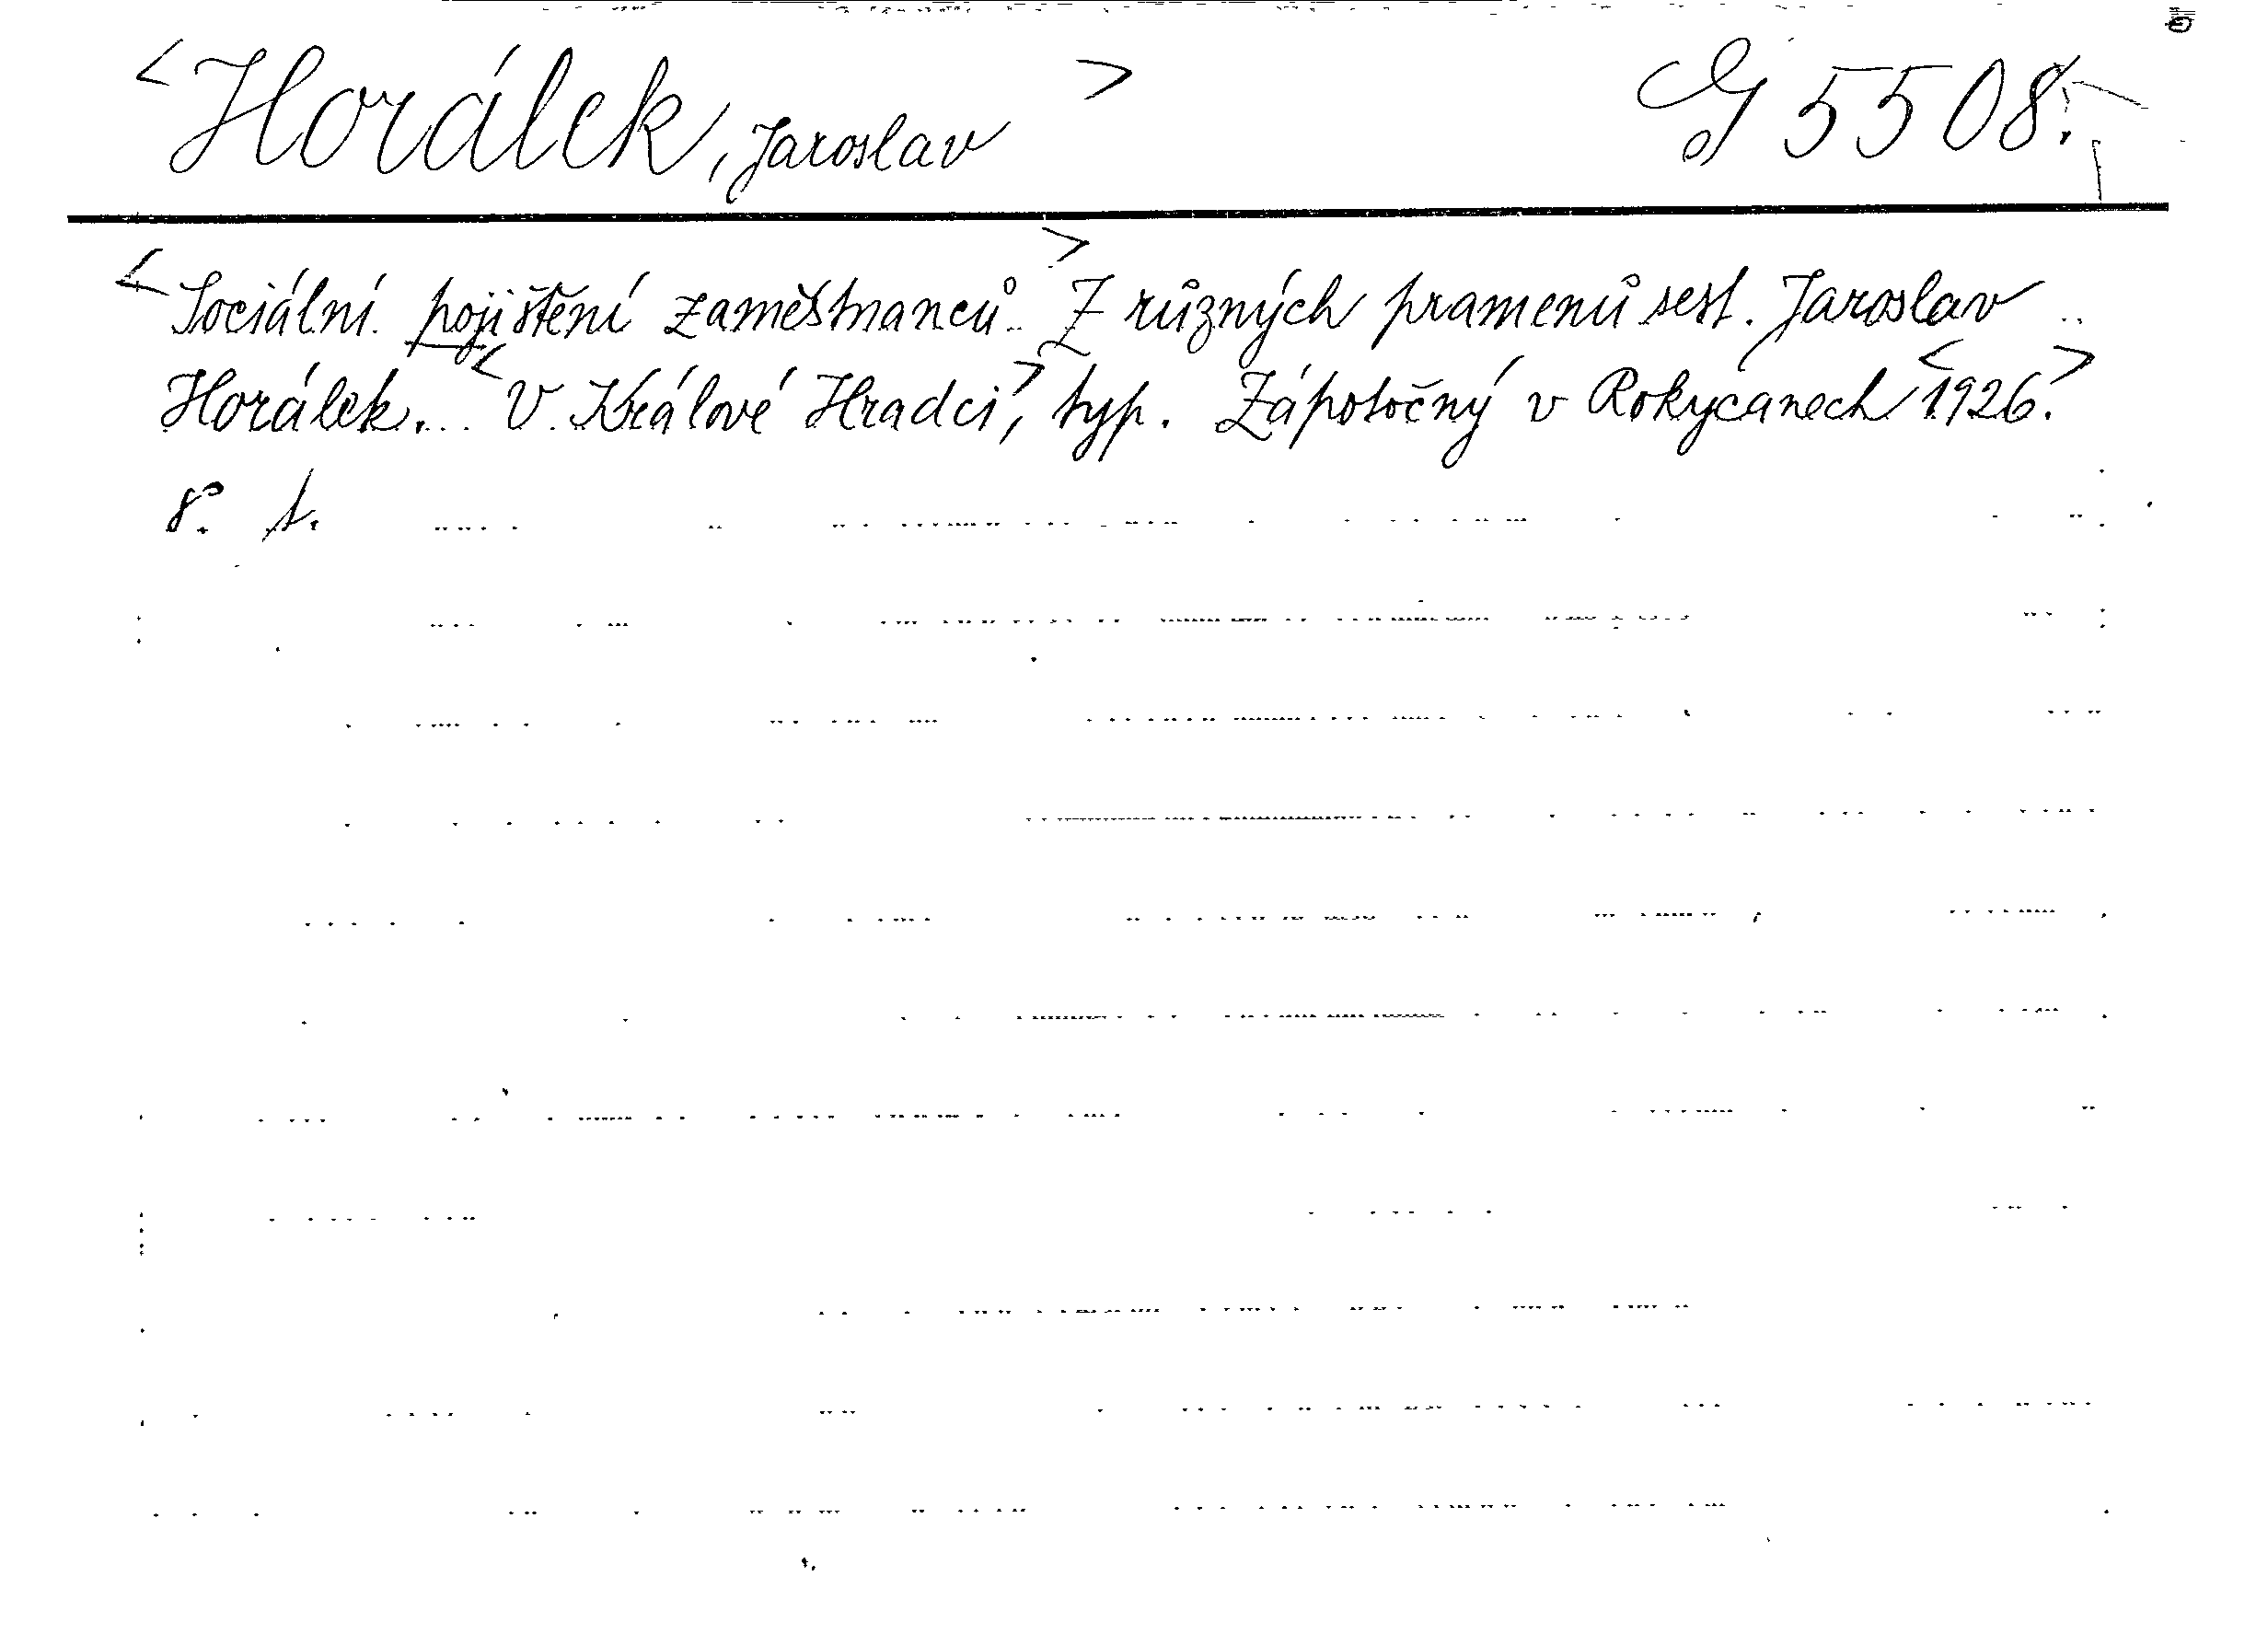 <Horálek, Jaroslav> G 5508.
<Sociální pojištění zaměstnanců.> Z různých pramenů sest. Jaroslav
Horálek. <V Králové Hradci>, typ. Zápotočný v Rokycanech <1926.>
8°. s.